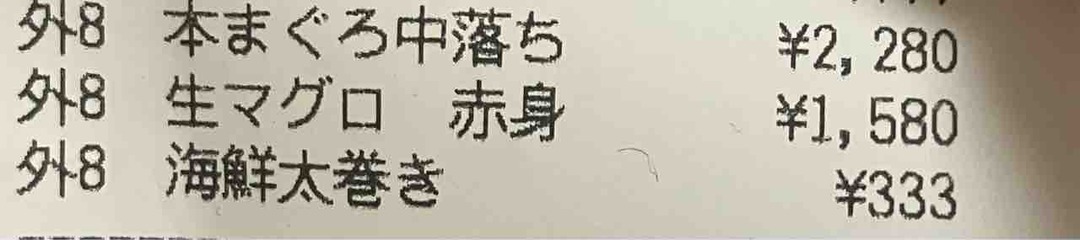 外8 本まぐろ中落ち ¥2,280
外8 生マグロ 赤身 ¥1,580
外8 海鮮太巻き ¥333